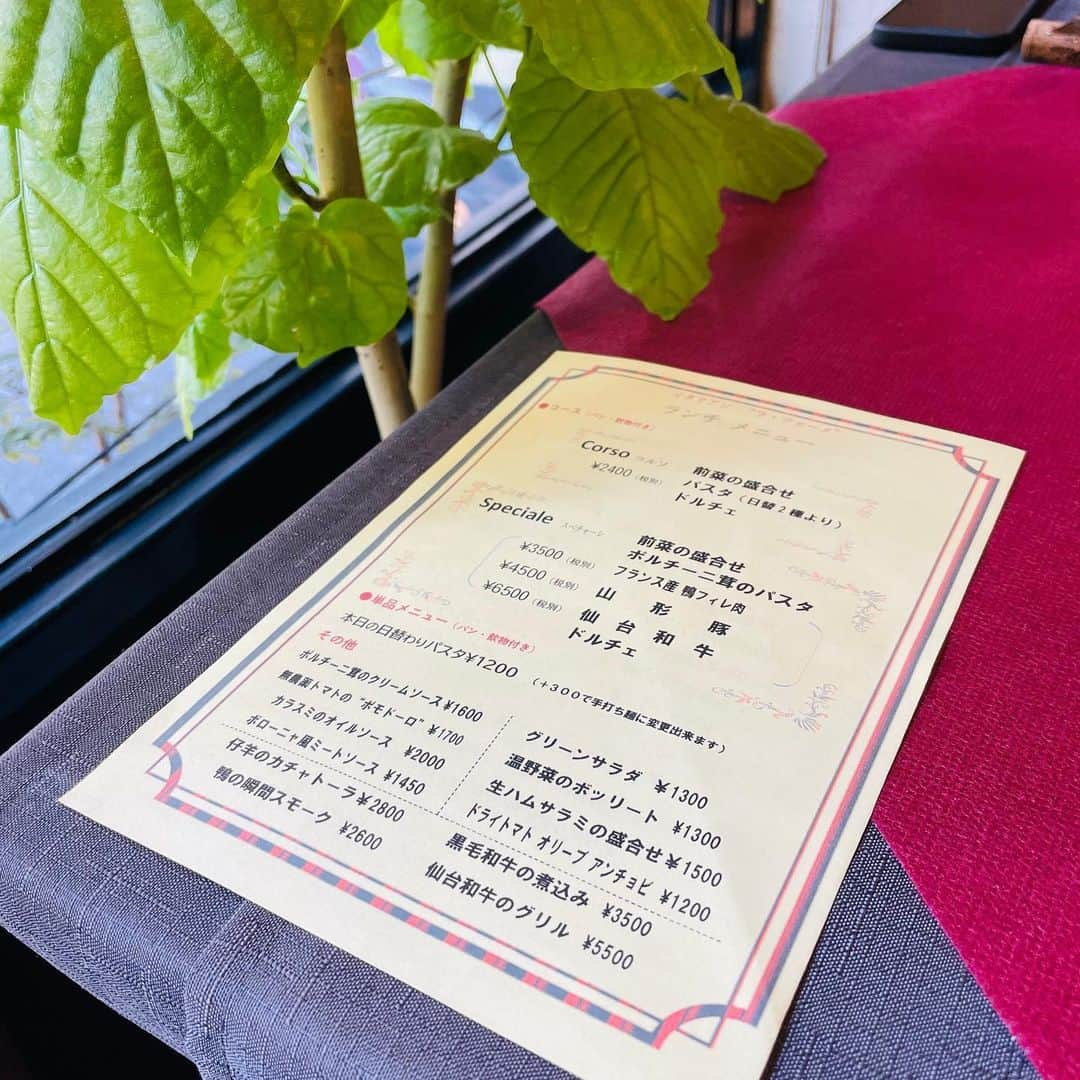 ランチ メニュー
●コース（パン・飲物付き）
Corso コルソ
¥2400（税別）
前菜の盛合せ
パスタ（日替２種より）
ドルチェ
Speciale スペチャーレ
前菜の盛合せ
ポルチーニ茸のパスタ
¥3500（税別） フランス産 鴨フィレ肉
¥4500（税別） 山形豚
¥6500（税別） 仙台和牛
ドルチェ
●単品メニュー（パン・飲物付き）
本日の日替わりパスタ¥1200 （＋３００で手打ち麺に変更出来ます）
その他
ポルチーニ茸のクリームソース¥1600
無農薬トマトの“ポモドーロ”¥1700
カラスミのオイルソース ¥2000
ボローニャ風ミートソース ¥1450
グリーンサラダ ¥1300
温野菜のボッリート ¥1300
生ハムサラミの盛合せ¥1500
ドライトマト オリーブ アンチョビ ¥1200
仔羊のカチャトーラ¥2800
鴨の瞬間スモーク ¥2600
黒毛和牛の煮込み ¥3500
仙台和牛のグリル ¥5500